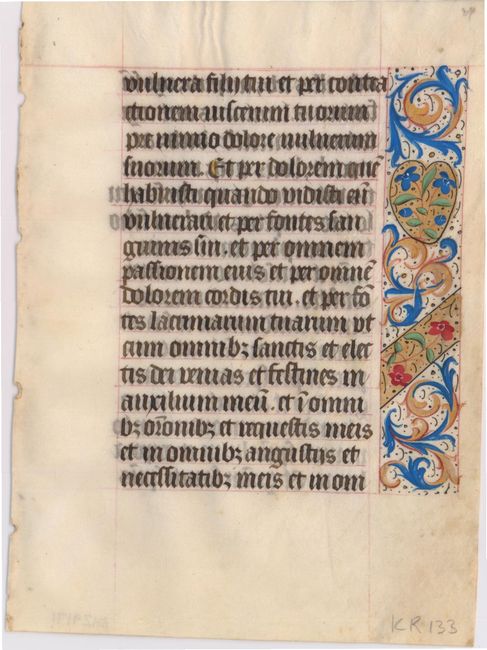 vulnera filij tui et per contra
ctionem viscerum tuorum
pre nimio dolore vulnerum
suorum. Et per dolorem quē
habuisti quando vidisti eū
vulnerari et per fontes san
guinis sui. et per omnem
passionem eius et per omnē
dolorem cordis tui. et per fō
tes lacrimarum tuarum vt
cum omnibꝫ sanctis et elec
tis dei venias et festines in
auxilium meū. et ī omni
bꝫ orōnibꝫ et requestis meis
et in omnibꝫ angustijs et
necessitatibꝫ meis et in om
KR 133